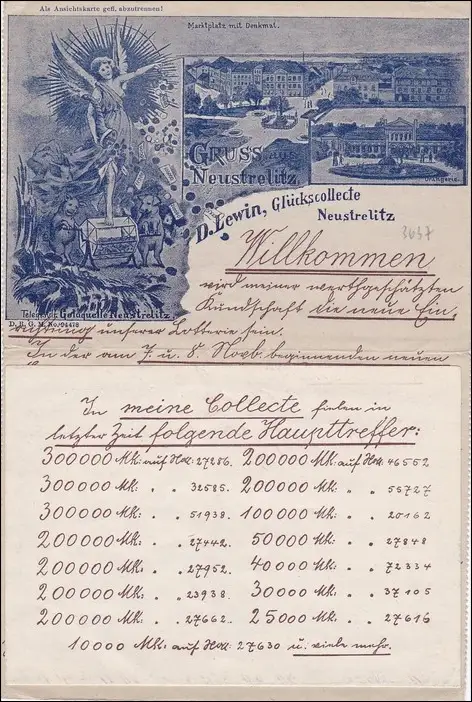 Als Ansichtskarte gefl. abzutrennen!
Marktplatz mit Denkmal.
GRUSS aus
Neustrelitz
Orangerie.
D. Lewin, Glückscollecte
Neustrelitz
3637
Willkommen
wird meiner werthgeschätzten
Kundschaft die neue Ein,
Telegr. Adr. Goldquelle Neustrelitz.
D. R. G. M. No. 94478
richtung unserer Lotterie sein.
In der am 7 u. 8 Novb. beginnenden neuen
In meine Collecte fielen in
letzter Zeit folgende Haupttreffer:
300000 Mk: auf No: 27286. 200000 Mk: auf No: 46552
300000 Mk: „ „ 32585. 200000 Mk: „ „ 55727
300000 Mk: „ „ 51938. 100000 Mk: „ „ 20162
200000 Mk: „ „ 27442. 50000 Mk: „ „ 27848
200000 Mk: „ „ 27952. 40000 Mk: „ „ 72334
200000 Mk: „ „ 23938. 30000 Mk: „ „ 37105
200000 Mk: „ „ 27662. 25000 Mk: „ „ 27616
10000 Mk: auf No: 27630 u. viele mehr.